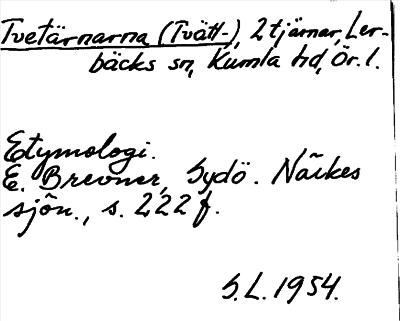 Tvetärnarna (Tvätt-), 2 tjärnar, Ler-
bäcks sn, Kumla hd, Ör. l.
Etymologi.
E. Brevner, Sydö. Näkes
sjön., s. 222 f.
S.L. 1954.